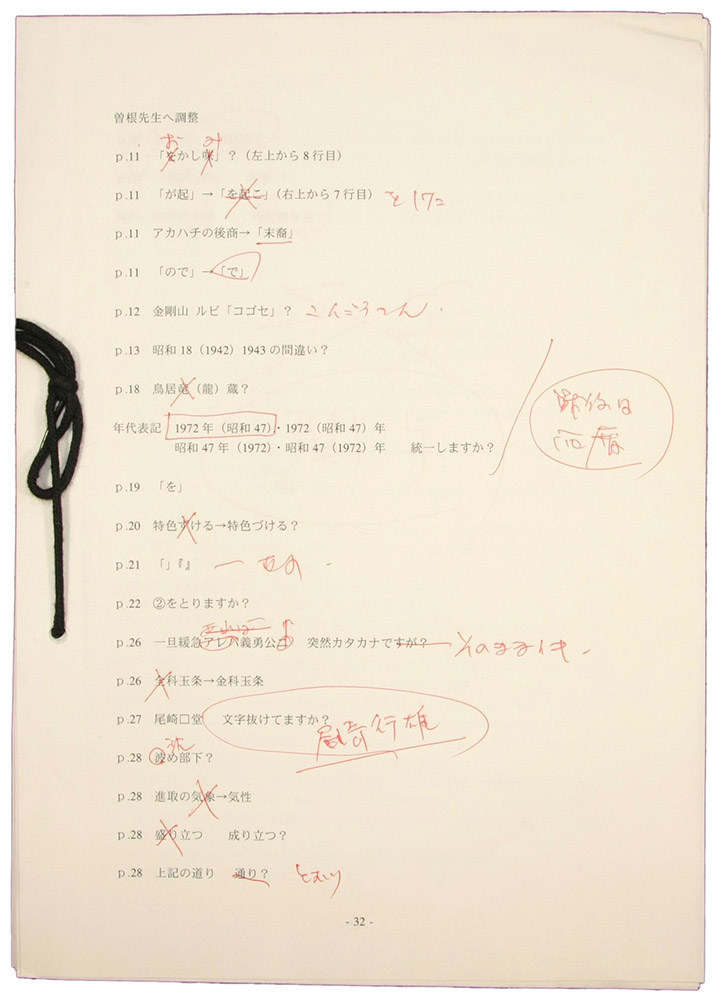 曽根先生へ調整
お み
p.11 「をかし味」？（左上から8行目）
p.11 「が起」→「を起こ」（右上から7行目）
p.11 アカハチの後商→「末裔」
p.11 「ので」→「で」
p.12 金剛山 ルビ「コゴセ」？ こんごうせん
p.13 昭和18（1942）1943の間違い？
p.18 鳥居竜（龍）蔵？
年代表記 1972年（昭和47）・1972（昭和47）年
昭和47年（1972）・昭和47（1972）年 統一しますか？
西暦
p.19 「を」
p.20 特色ずける→特色づける？
p.21 「」『』
p.22 ②をとりますか？
p.26 一旦緩急アレバ義勇公 突然カタカナですが？ そのままイキ
p.26 全科玉条→金科玉条
p.27 尾崎□堂 文字抜けてますか？ 尾崎行雄
p.28 波め部下？
p.28 進取の気象→気性
p.28 盛り立つ 成り立つ？
p.28 上記の道り 通り？ とおり
- 32 -